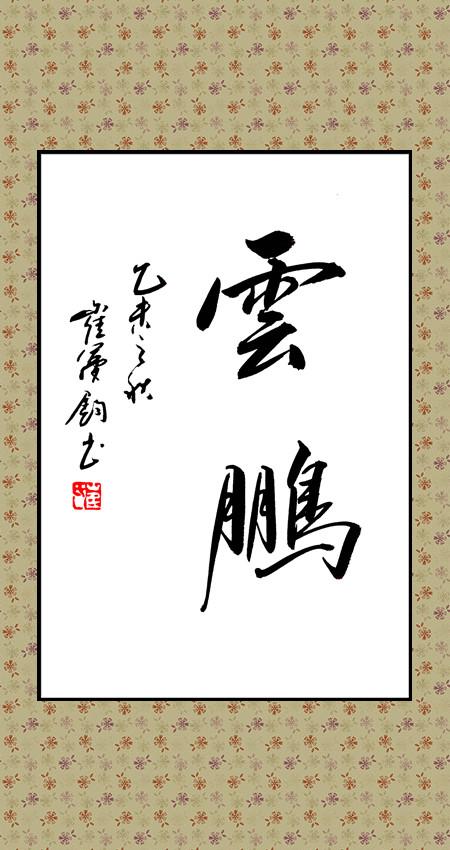 雲鵬
乙未之秋
崔學鈞书